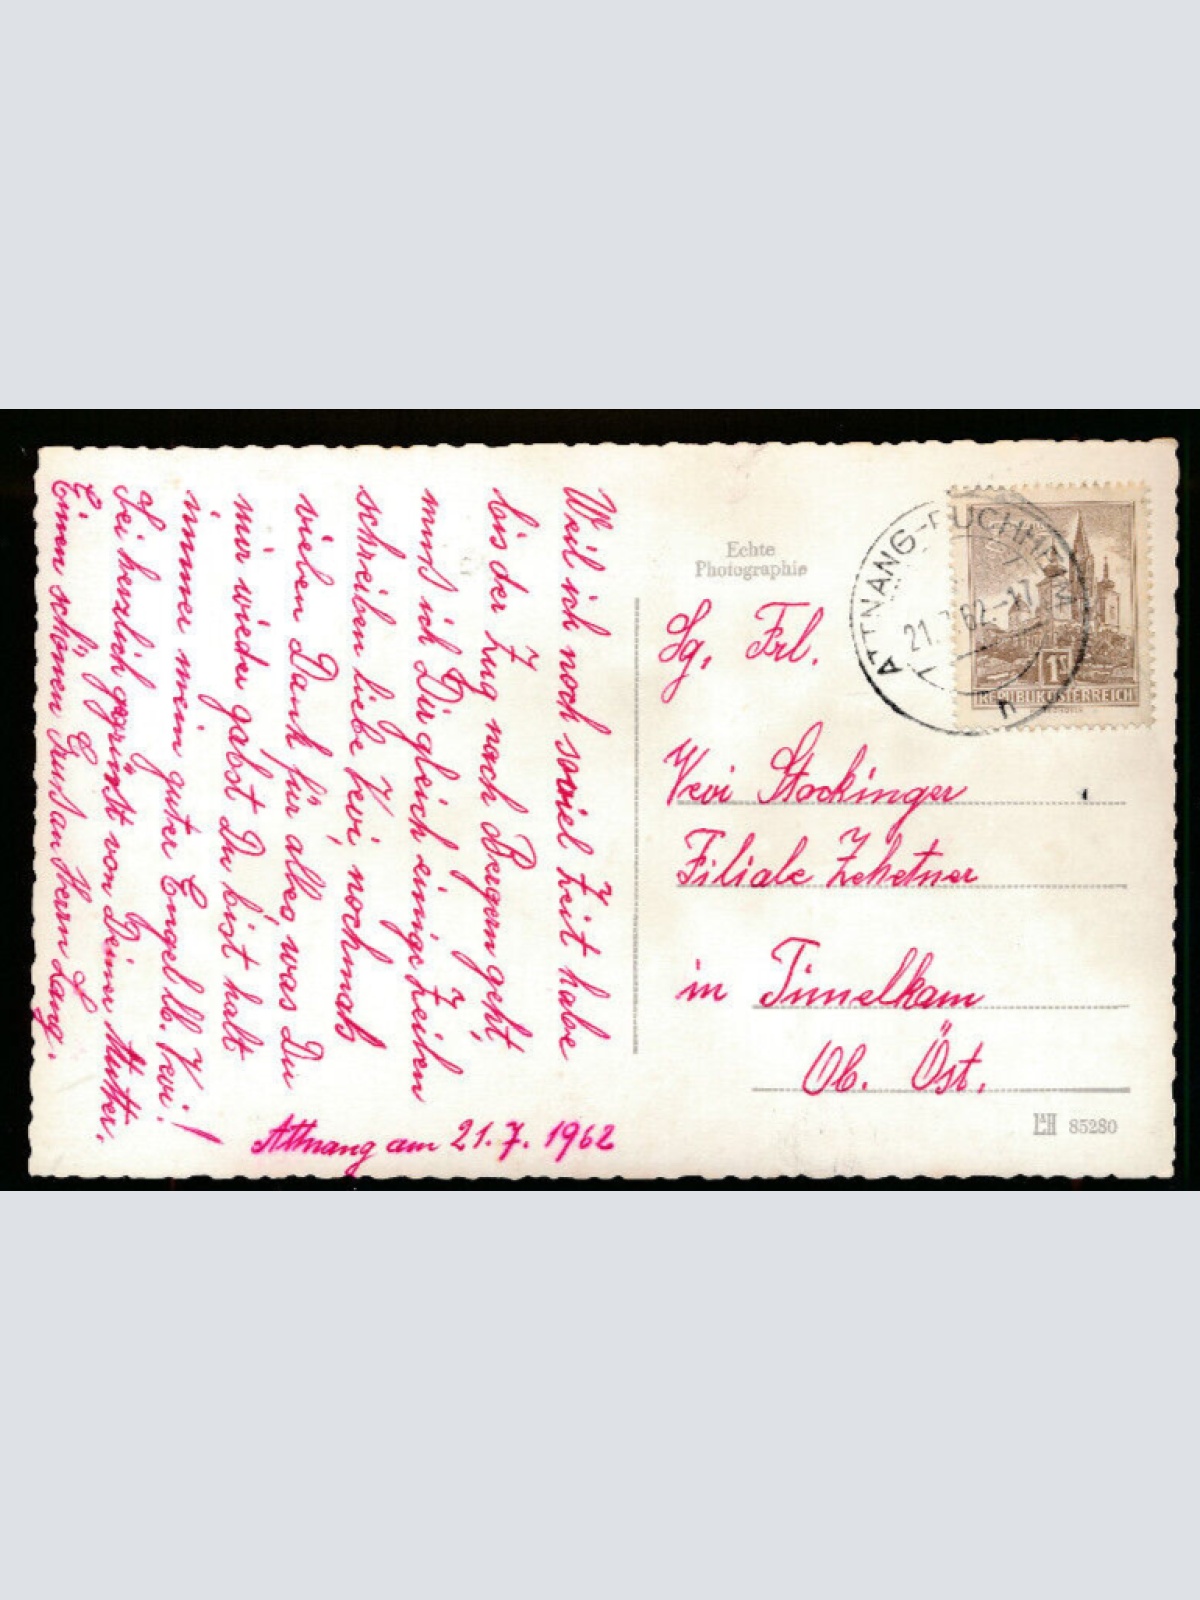 Weil ich noch soviel Zeit habe
bis der Zug nach Bergern geht,
muß ich Dir gleich einige Zeilen
schreiben liebe Vevi, nochmals
vielen Dank für alles was Du
mir wieder gabst Du bist halt
immer mein guter Engel lb. Vevi!
Sei herzlich gegrüßt von Deiner Mutter.
Einen schönen Gruß an Herrn Lang.
Attnang am 21. 7. 1962
Echte
Photographie
Sg. Frl.
Vevi Stockinger
Filiale Zehetner
in Timelkam
Ob. Öst.
85280
ATTNANG-PUCHHEIM
21.7.62.-17
h
1S
REPUBLIK ÖSTERREICH